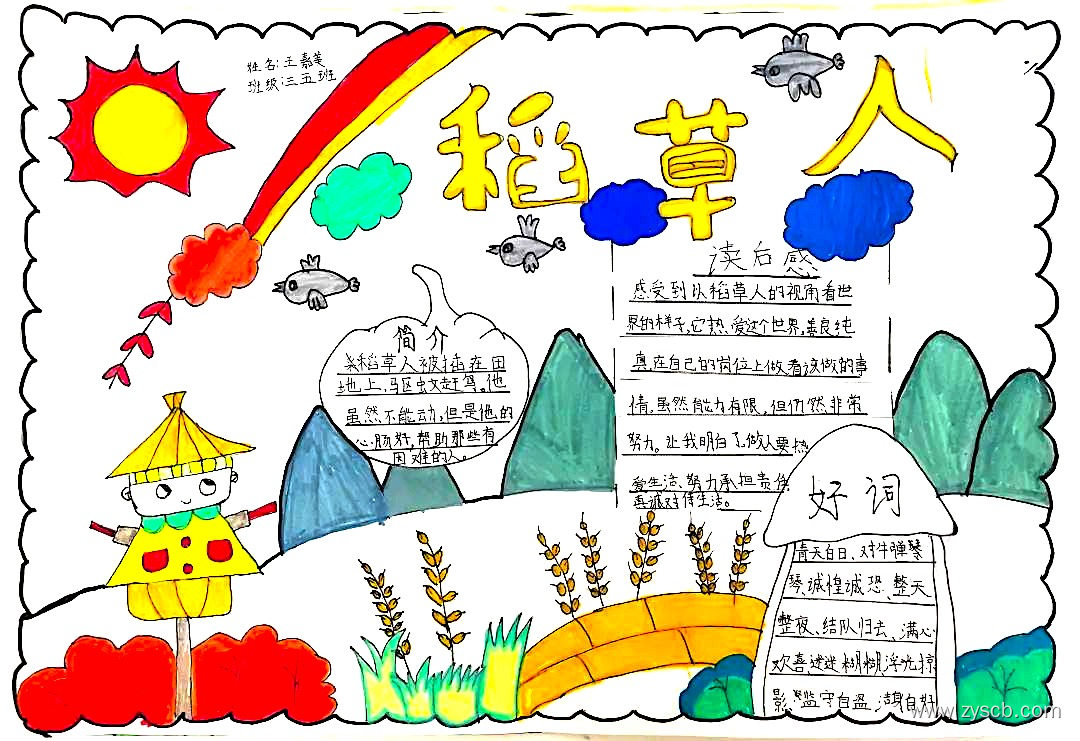 姓名:王嘉美
班级:三五班
稻草人
简介
稻草人被插在田
地上,驱蚊赶鸟。他
虽然不能动,但是他的
心肠好,帮助那些有
困难的人。
读后感
感受到以稻草人的视角看世
界的样子,它热爱这个世界,善良纯
真,在自己的岗位上做着该做的事
情,虽然能力有限,但仍然非常
努力。让我明白了做人要热
爱生活、努力承担责任
真诚对待生活。
好词
青天白日、对牛弹琴
琴诚惶诚恐、整天
整夜、结队归去、满心
欢喜迷迷糊糊浮光掠
影、监守自盗、洁身自好
www.zyscb.com